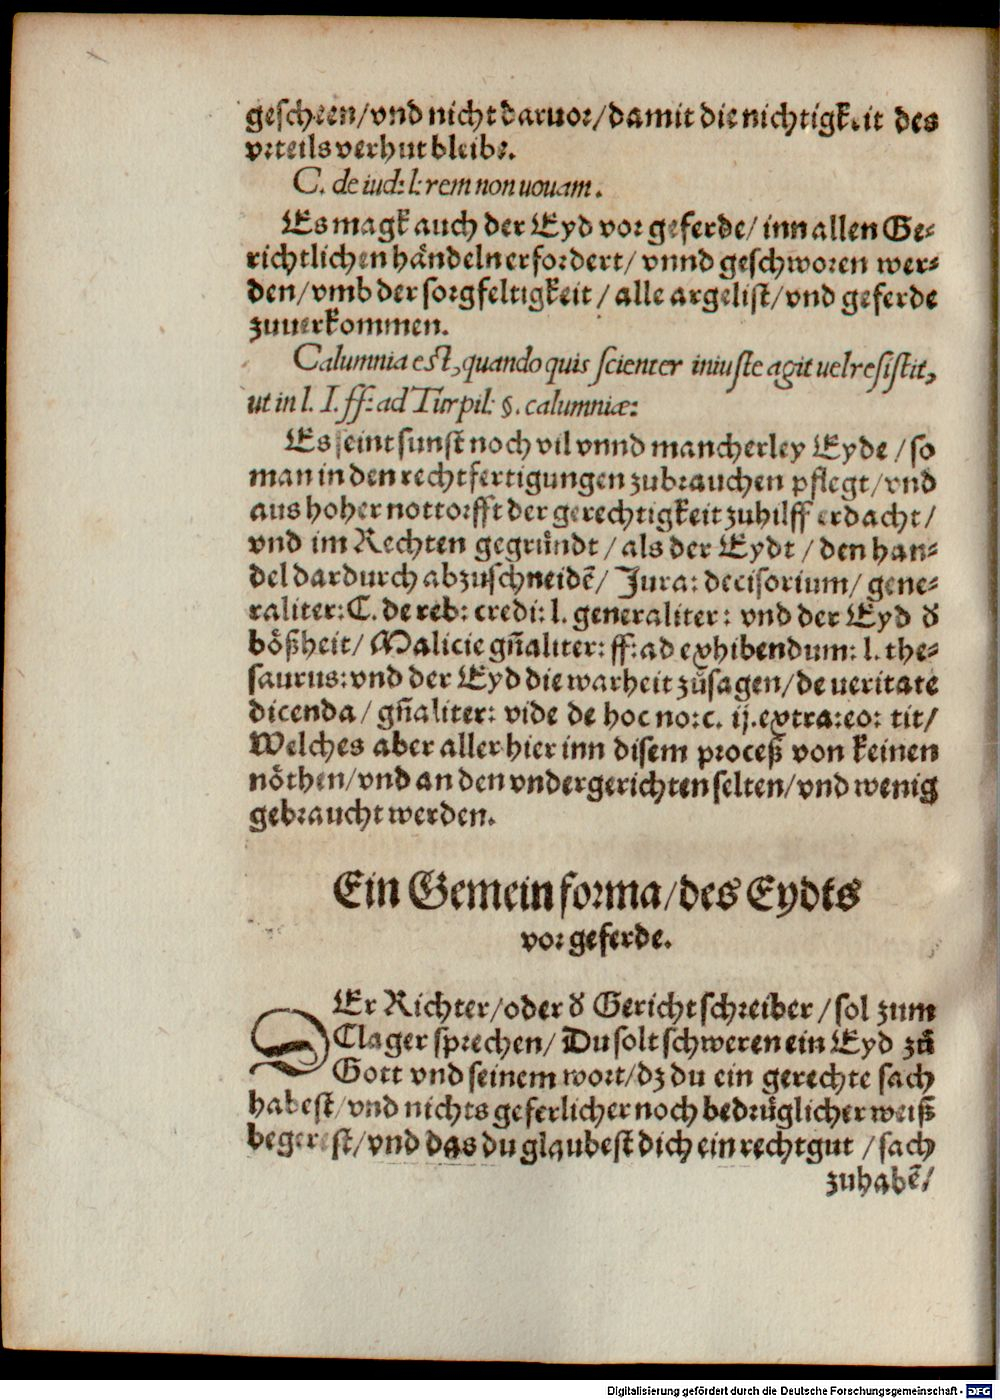 gescheen/vnd nicht daruor/damit die nichtigkeit des
vrteils verhut bleibe.
C. de iud: l: rem non nouam.
Es magk auch der Eyd vor geferde/ inn allen Ge-
richtlichen händeln erfordert/ vnnd geschworen wer-
den/vmb der sorgfeltigkeit/ alle argelist/vnd geferde
zuuerkommen.
Calumnia est, quando quis scienter iniuste agit uel resistit,
ut in l. I. ff: ad Turpil: §. calumniæ:
Es seint sunst noch vil vnnd mancherley Eyde /so
man in den rechtfertigungen zubrauchen pflegt/vnd
aus hoher nottorfft der gerechtigkeit zuhilff erdacht/
vnd im Rechten gegründt/als der Eydt/den han-
del dardurch abzuschneidē/ Jura: decisorium/ gene-
raliter: C. de reb: credi: l. generaliter: vnd der Eyd d̕
bößheit/ Malicie gn̄aliter: ff: ad exhibendum: l. the-
saurus: vnd der Eyd die warheit zůsagen/de ueritate
dicenda/ gn̄aliter: vide de hoc no: c. ij. extra: eo: tit/
Welches aber aller hier inn disem proceß von keinen
nöthen/vnd an den vndergerichten selten/vnd wenig
gebraucht werden.
Ein Gemein forma/des Eydts
vor geferde.
DEr Richter/oder d̕ Gerichtschreiber/sol zum
Clager sprechen/ Du solt schweren ein Eyd zů
Gott vnd seinem wort/dz du ein gerechte sach
habest/vnd nichts geferlicher noch bedrüglicher weiß
begerest/vnd das du glaubest dich ein recht gut /sach
zuhabē/
Digitalisierung gefördert durch die Deutsche Forschungsgemeinschaft - DFG